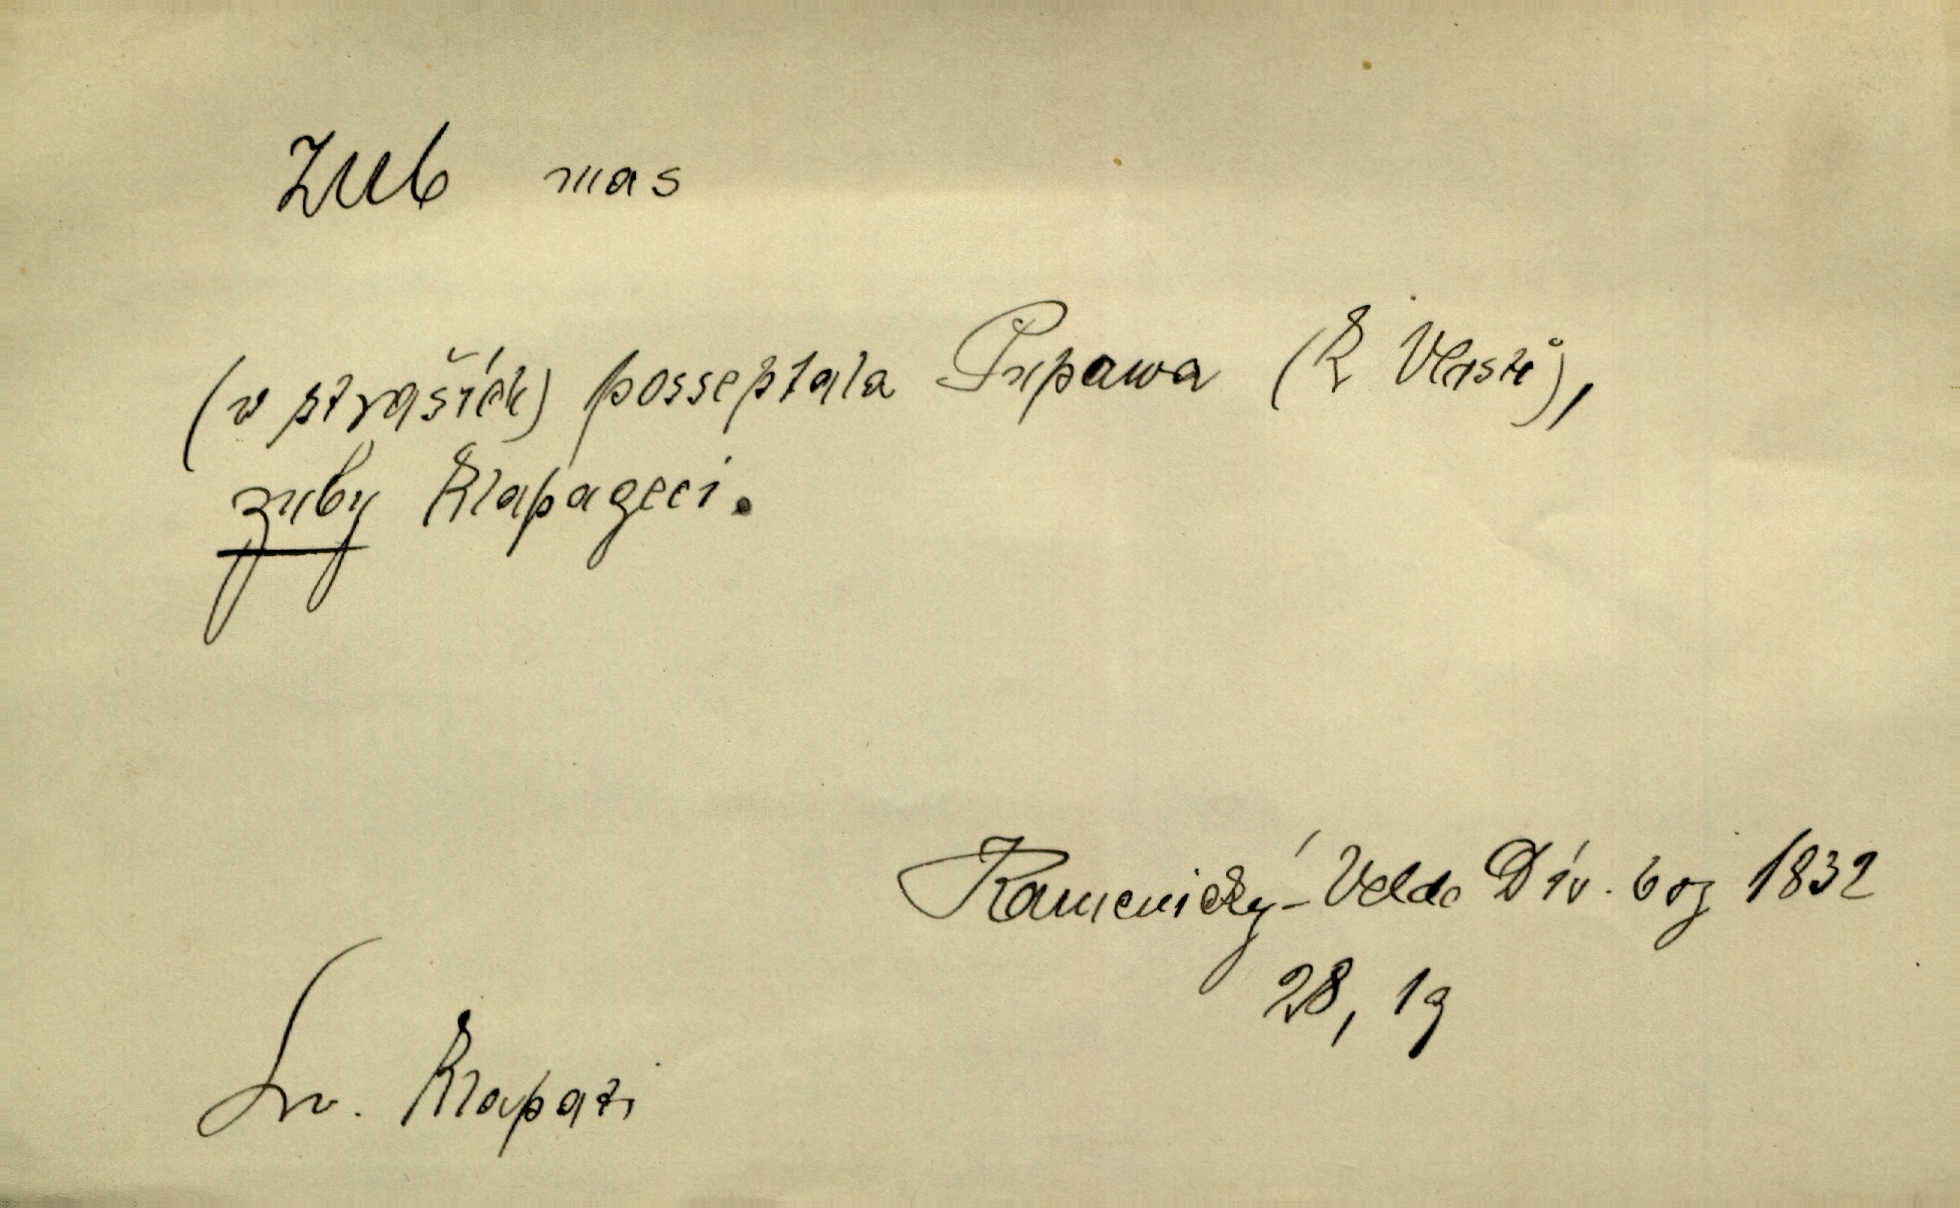 Zub mas
(v ptraších) posseptala Pupawa (k Vlastě),
zuby klapageci.
Kamenický-Velde Dív. boj 1832
28, 19
Sv. klapati